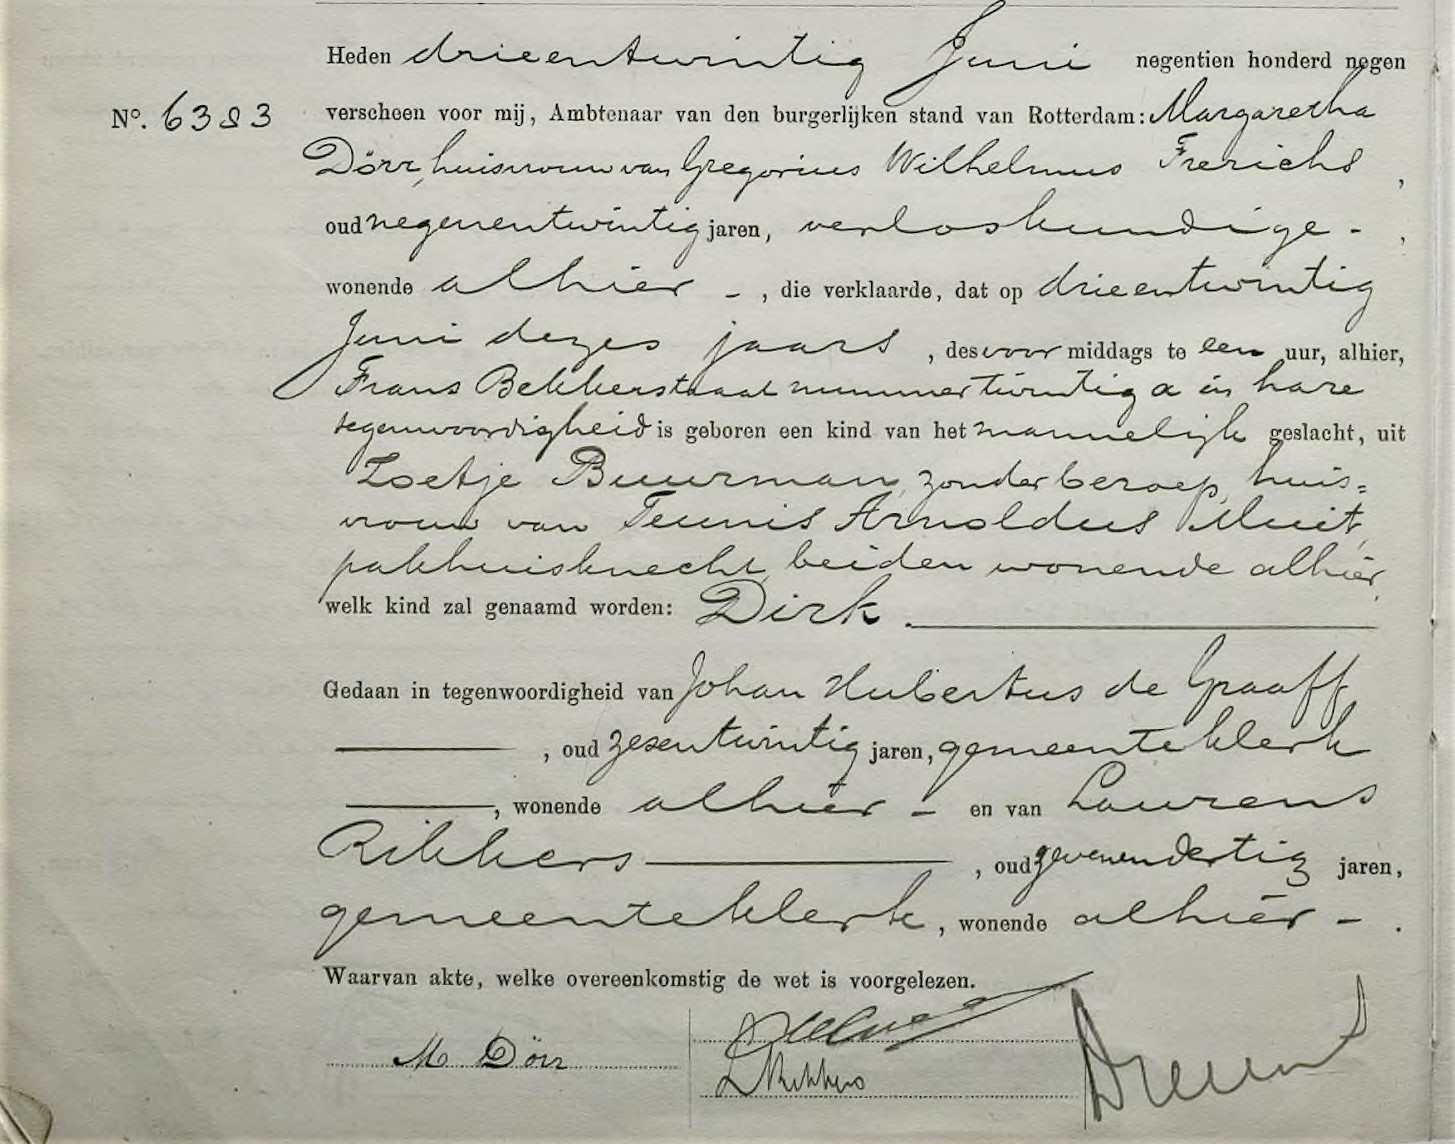 Heden drieentwintig Juni negentien honderd negen
No. 6383 verscheen voor mij, Ambtenaar van den burgerlijken stand van Rotterdam: Margaretha
Dörr, huisvrouw van Gregorius Wilhelmus Frerichs,
oud negenentwintig jaren, verloskundige -,
wonende alhier -, die verklaarde, dat op drieentwintig
Juni dezes jaars, des voor middags te een uur, alhier,
Frans Bekkerstraat nummer twintig a in hare
tegenwoordigheid is geboren een kind van het mannelijk geslacht, uit
Zoetje Buurman, zonder beroep, huis=
vrouw van Teunis Arnoldus Muit,
pakhuisknecht, beiden wonende alhier,
welk kind zal genaamd worden: Dirk.
Gedaan in tegenwoordigheid van Johan Hubertus de Graaff
, oud zesentwintig jaren, gemeenteklerk
, wonende alhier - en van Laurens
Rikkers, oud zevenendertig jaren,
gemeenteklerk, wonende alhier -.
Waarvan akte, welke overeenkomstig de wet is voorgelezen.
M Dörr
L Rikkers